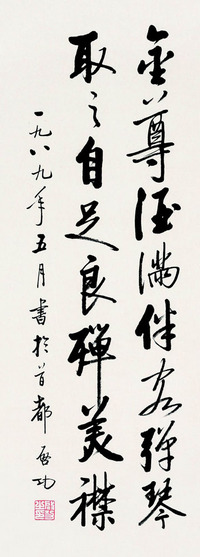 金尊酒滿伴客彈琴
取之自足良殫美襟
一九八九年五月書於首都 启功